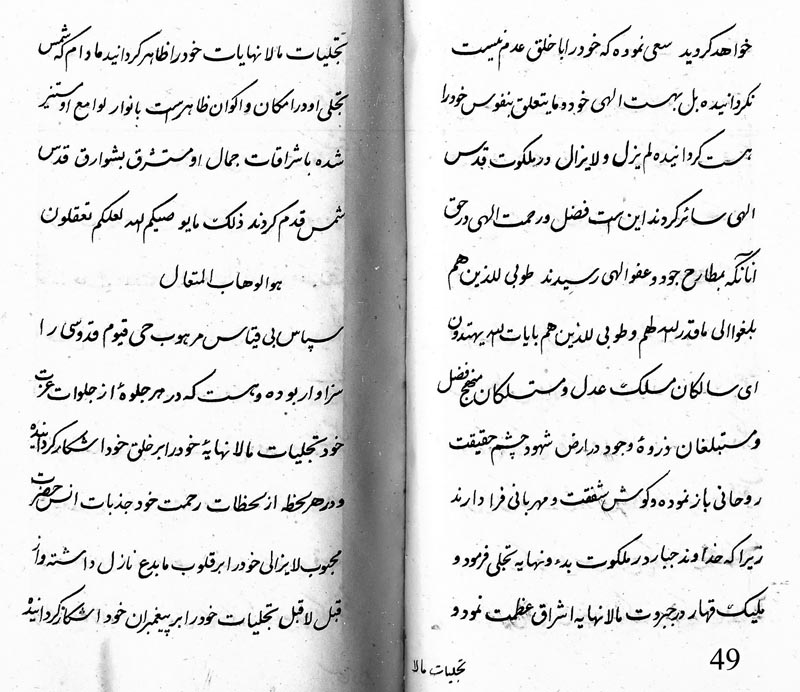 خواهد کردید سعی نموده که خود را با خلق عدم نیست
نکردانیده بل بهست الهی خود و ما یتعلق بنفوس خود را
هست کردانیده لم یزل و لایزال در ملکوت قدس
الهی سائر کردند این است فضل و رحمت الهی در حق
آنانکه بمطارح جود و عفو الهی رسیدند طوبی للذین هم
بلغوا الی ما قدر الله لهم و طوبی للذین هم بایات الله یهتدون
ای سالکان مسلک عدل و مستلکان منهج فضل
و مستبلغان ذروهٔ وجود در ارض شهود چشم حقیقت
روحانی باز نموده و کوش شفقت و مهربانی فرا دارند
زیرا که خداوند جبار در ملکوت بدء و نهایه تجلی فرمود و
ملیک قهار در جبروت مالانهایه اشراق عظمت نمود و
تجلیات مالا
49
تجلیات مالانهایات خود را ظاهر کردانید مادام که شمس
تجلی او در امکان و اکوان ظاهر است بانوار لوامع او مستنیر
شده باشراقات جمال او مستشرق بشوارق قدس
شمس قدم کردند ذلک ما یوصیکم الله لعلکم تعقلون
هو الوهاب المتعال
سپاس بی قیاس مرهوب حی قیوم قدوسی را
سزاوار بوده و هست که در هر جلوهٔ از جلوات عزت
خود تجلیات مالانهایهٔ خود را بر خلق خود اشکار کردانیده
و در هر لحظه از لحظات رحمت خود جذبات انس حضرت
محبوب لایزالی خود را بر قلوب ما بدع نازل داشته و از
قبل لاقبل تجلیات خود را بر پیغمبران خود اشکار کردانیده